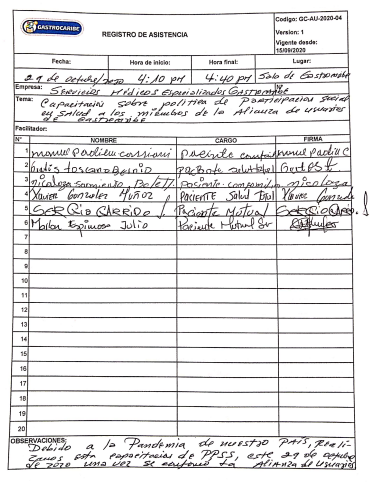 GASTROCARIBE
REGISTRO DE ASISTENCIA
Codigo: GC-AU-2020-04
Version: 1
Vigente desde:
15/09/2020
Fecha: Hora de inicio: Hora final: Lugar:
29 de octubre/2020 4:10 PM 4:40 PM Sala de Gastrocaribe
Empresa: Servicios Médicos Especializados Gastrocaribe N°
Tema: Capacitación sobre política de Participación Social
en Salud a los miembros de la Alianza de Usuarios
de Gastrocaribe
Facilitador:
N° NOMBRE CARGO FIRMA
1 manuel Padilla Paciente manuel Padilla C
2 Paciente Salud total
3 nicolasa Sarmiento Paciente nicolasa
4 Xavier Gonzalez Muñoz PACIENTE Salud Total Xavier
5 SERGIO GARRIDO Paciente Mutual SERGIO GARRIDO
6 Espinosa Julio Paciente Mutual Ser
7
8
9
10
11
12
13
14
15
16
17
18
19
20
OBSERVACIONES: Debido a la Pandemia de nuestro PAIS, Reali
zamos esta capacitacion de PPSS, este 29 de octubre
de 2020 una vez se conformo la Alianza de Usuarios